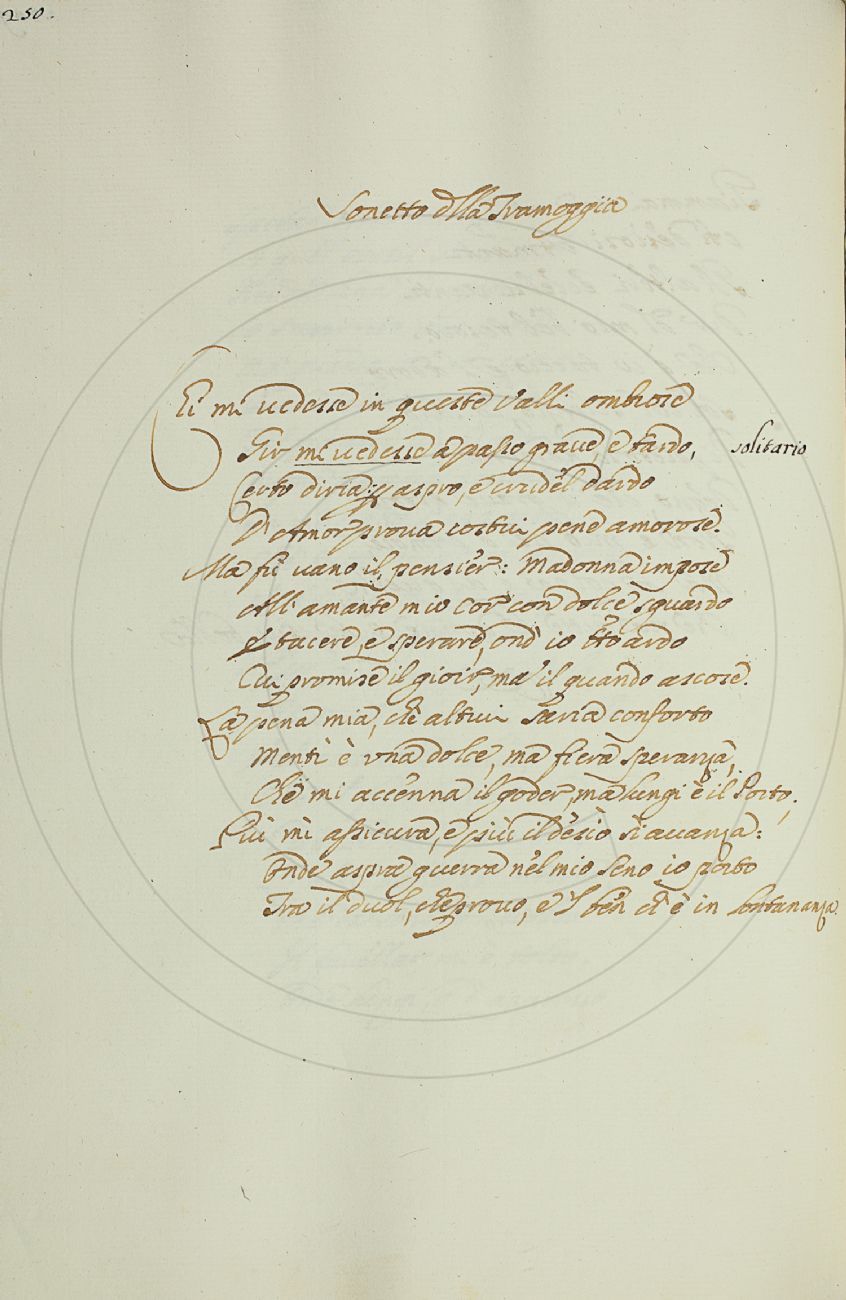 250.
Sonetto dlla Tramoggia
Ei mi vedesse in queste Valli ombrose
Gir mi vedesse a passo grave, e tardo, solitario
Certo diria aspro, e crudel dardo
D'Amor prova costui pene amorose.
Ma fù vano il pensier: Madonna impose
All'amante mio Cor con dolce sguardo
tacere, e sperare, ond'io tto ardo
Cui promise il gioir, ma'l quando ascose.
La pena mia, che altrui saria conforto
Mentì è una dolce, ma fiera speranza,
Che mi accenna il goder, ma lungi è il Porto;
Più mi assicura, e più il desio si avanza:
Onde aspra guerra nel mio seno io porto
Tra il duol, che provo, e 'l ben ch'è in lontananza.